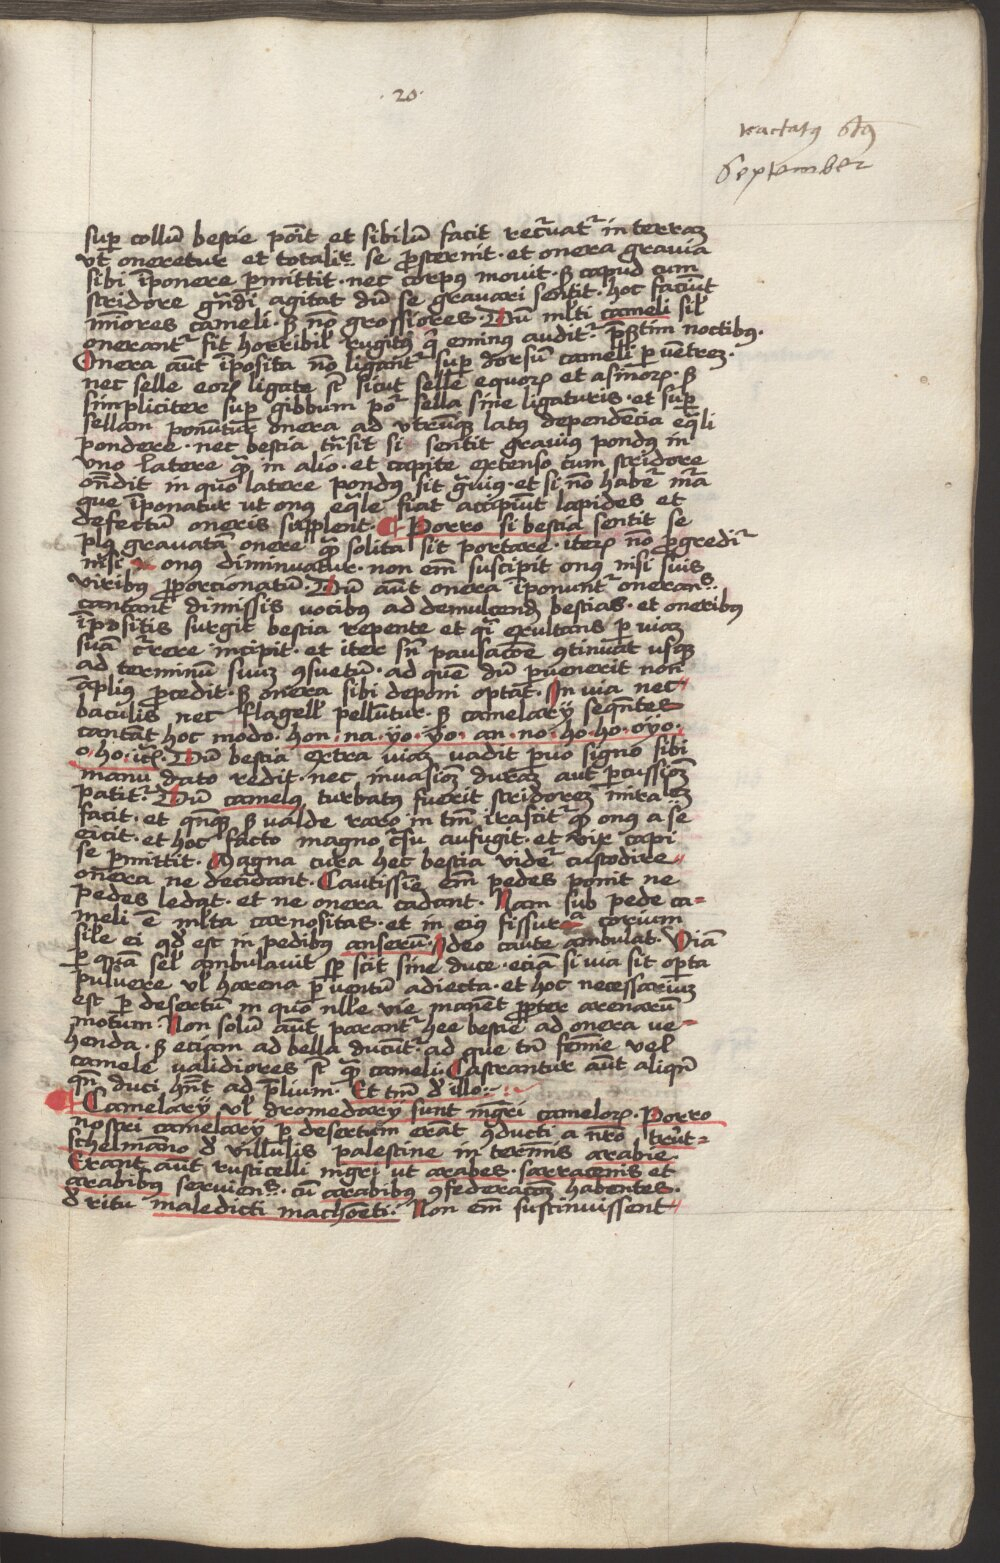 · 20 ·
tractatꝰ 6tꝰ
September
suꝑ collū bestie poīt et sibilū facit recͬuatͬ in terraꝫ
vt oneretur et totalit̾ se ꝓsternit · et onera gravia
sibi īponere ꝑmittit · nec corpꝰ movit · sꝫ capud cum
stridore gͬndi agitat dū se gravari sentit · hoc faciūt
miōres cameli · sꝫ nō grossiores · Dū ml̄ti cameli sil̄
onerantͬ fit horribil̄ rugitꝰ qͥ eminꝰ auditͬ · p̄s̄tim noctibꝰ ·
Onera aūt īposita nō ligantͬ suꝑ dorsū cameli ꝑ uētreꝫ ·
nec selle eoꝝ ligate st̄ sicut selle equoꝝ et asinoꝝ · sꝫ
simpliciter suꝑ gibbum poͬ sella sine ligaturis · et suꝑ
sellam ponūtur onera ad vtrūqꝫ latꝰ dependēcia eq̄li
pondere · nec bestia tn̄sit si sentit gravius pondꝰ in
vno latere qͣꝫ in alio · et capite extenso cum stridore
on̄dit in quo latere pondꝰ sit gͬuiꝰ · et si nō habeͬ mͬā
que īponatur ut onꝰ eq̄le fiat accipiūt lapides et
defectū oneris supplent · ¶ Porro si bestia sentit se
plꝰ gravatā onere qͣꝫ solita sit portare · iteꝝ nō ꝓgrediͬ
nisi onꝰ diminuatur · non em̄ suscipit onꝰ nisi suis
viribꝰ ꝓporcionatū · Dū aūt onera īponuntͬ onerans̄
cantant dimissis vocibꝰ ad demulcend̄ bestias · et oneribꝰ
īpositis surgit bestia repente et qͥ exultans ꝑ viaꝫ
suā cͬrere incipit · et iter sn̄ pausacōe ꝯtinuat usqꝫ
ad terminū suuꝫ ꝯsuetū · ad quē dū ꝑuenerit non
āplius ꝓcedit · sꝫ onera sibi deponi optat · In via nec
baculis nec flagell̄ pellūtur · sꝫ camelarÿ seqn̄tes
cantāt hoc modo · hon · na · yo · yo · an · no · ho · ho · oyo ·
o · ho · itͬ · Dū bestia extra viaꝫ vadit ꝑuo signo sibi
manu dato redit · nec invasioꝫ duraꝫ aut ꝑcussioꝫ
patitͬ · Dū camelꝰ turbatꝰ fuerit stridoreꝫ mirabl̄eꝫ
facit · et qn̄qꝫ sꝫ valde raro in tm̄ irascitͬ qꝫ onꝰ a se
eicit · et hoc facto magno cͬsu aufugit · et vix capi
se ꝑmittit · Magna cura hec bestia videͬ custodire
onera ne decidant · Cautissīe em̄ pedes ponit ne
pedes ledāt · et ne onera cadant · Nam sub pede ca=
meli ē ml̄ta carnositas · et in eiꝰ fissura corium
sil̄e ei qd̄ est in pedibꝰ anserū · Ideo caute ambulat · Viā
ꝑ quā sel̄ ambulavit sꝑ scit sine duce · eciā si via sit oꝑta
pulvere vl̄ harena ꝑ ventū adiecta · et hoc necessariuꝫ
est ꝑ desertū in quo nlle vie manēt ꝓpter arenarū
motum · Non solū aūt parantͬ hee bestie ad onera ve=
henda · sꝫ eciam ad bella ducūtͬ ad que tn̄ femīe vel
camele validiores st̄ qͣꝫ cameli · Castrantur aūt aliqn̄
qn̄ duci hn̄t ad p̄lium · Et tm̄ ꝺ illo ·:·
¶ Camelarÿ vl̄ dromedarÿ sunt mgͬri cameloꝝ · Porro
nostri camelarÿ ꝑ desertum erāt ꝯducti a nr̄o trut=
schelmāno ꝺ villulis palestine in termīs arabie
Erant aūt rusticelli nigri ut arabes · sarracenis et
arabibꝰ serviens̄ · cū arabibꝰ ꝯfederacōꝫ habentes ·
ꝺ ritu maledicti machōeti · Non em̄ sustinuissent